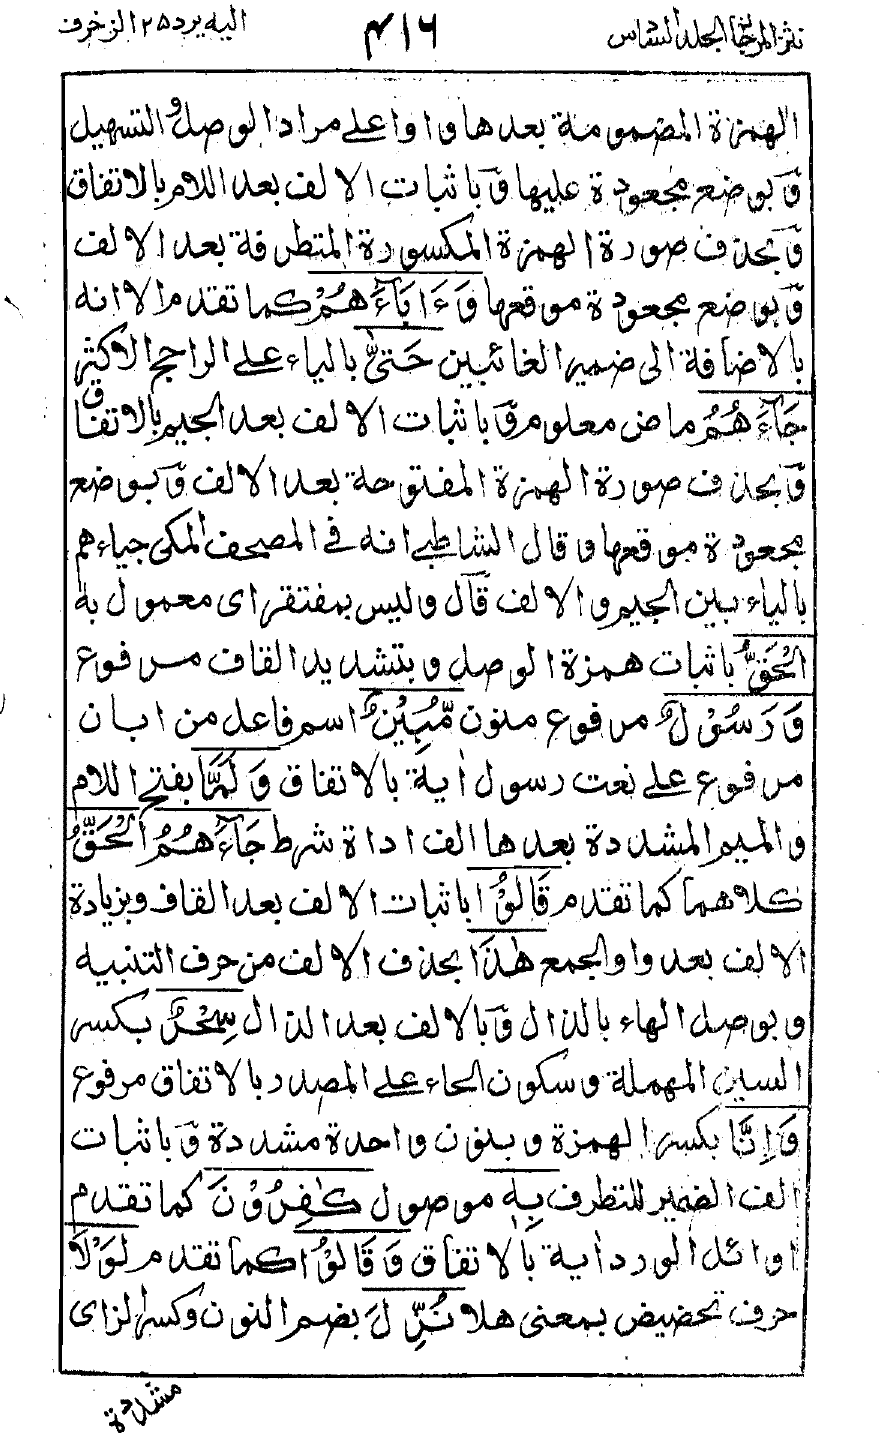 نثر المرجان الجلد السادس ٤١٦ اليه يرد ٢٥ الزخرف
الهمزة المضمومة بعدها واوا على مراد الوصل والتسهيل
وَبوضع مجعودة عليها وَباثبات الالف بعد اللام بالاتفاق
وَبحذف صورة الهمزة المكسورة المتطرفة بعد الالف
وَبوضع مجعودة موقعها وَءَابَآءَهُمْ كما تقدم الا انه
بالاضافة الى ضمير الغائبين حَتّٰى بالياء على الراجح الاكثر
جَآءَهُمُ ماض معلوم وَباثبات الالف بعد الجيم بالاتفاق
وَبحذف صورة الهمزة المفتوحة بعد الالف وَبوضع
مجعودة موقعها وقال الشاطبي انه في المصحف المكى جياءهم
بالياء بين الجيم والالف قال وليس بمفتقر اى معمول به
الْحَقُّ باثبات همزة الوصل وبتشديد القاف مرفوع
وَرَسُوْلٌ مرفوع منون مُّبِيْنٌ اسم فاعل من ابان
مرفوع على نعت رسول اٰية بالاتفاق وَلَمَّا بفتح اللام
والميم المشددة بعدها الف اداة شرط جَآءَهُمُ الْحَقُّ
كلاهما كما تقدم قَالُوْا باثبات الالف بعد القاف وبزيادة
الالف بعد واو الجمع هٰذَا بحذف الالف من حرف التنبيه
وبوصل الهاء بالذال وَبالالف بعد الذال سِحْرٌ بكسر
السين المهملة وسكون الحاء على المصدر بالاتفاق مرفوع
وَاِنَّا بكسر الهمزة وبنون واحدة مشددة وَباثبات
الف الضمير للتطرف بِهٖ موصول كٰفِرُوْنَ كما تقدم
اوائل الورد اٰية بالاتفاق وَقَالُوْا كما تقدم لَوْلَا
حرف تحضيض بمعنى هلا نُزِّلَ بضم النون وكسر الزاى
مشددة